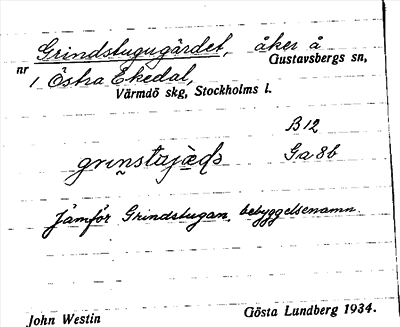 Grindstugugärdet, åker å
nr Gustavsbergs sn,
1 Östra Ekedal,
Värmdö skg, Stockholms l.
B12
Ga 8b
Jämför Grindstugan, bebyggelsenamn.
John Westin Gösta Lundberg 1934.